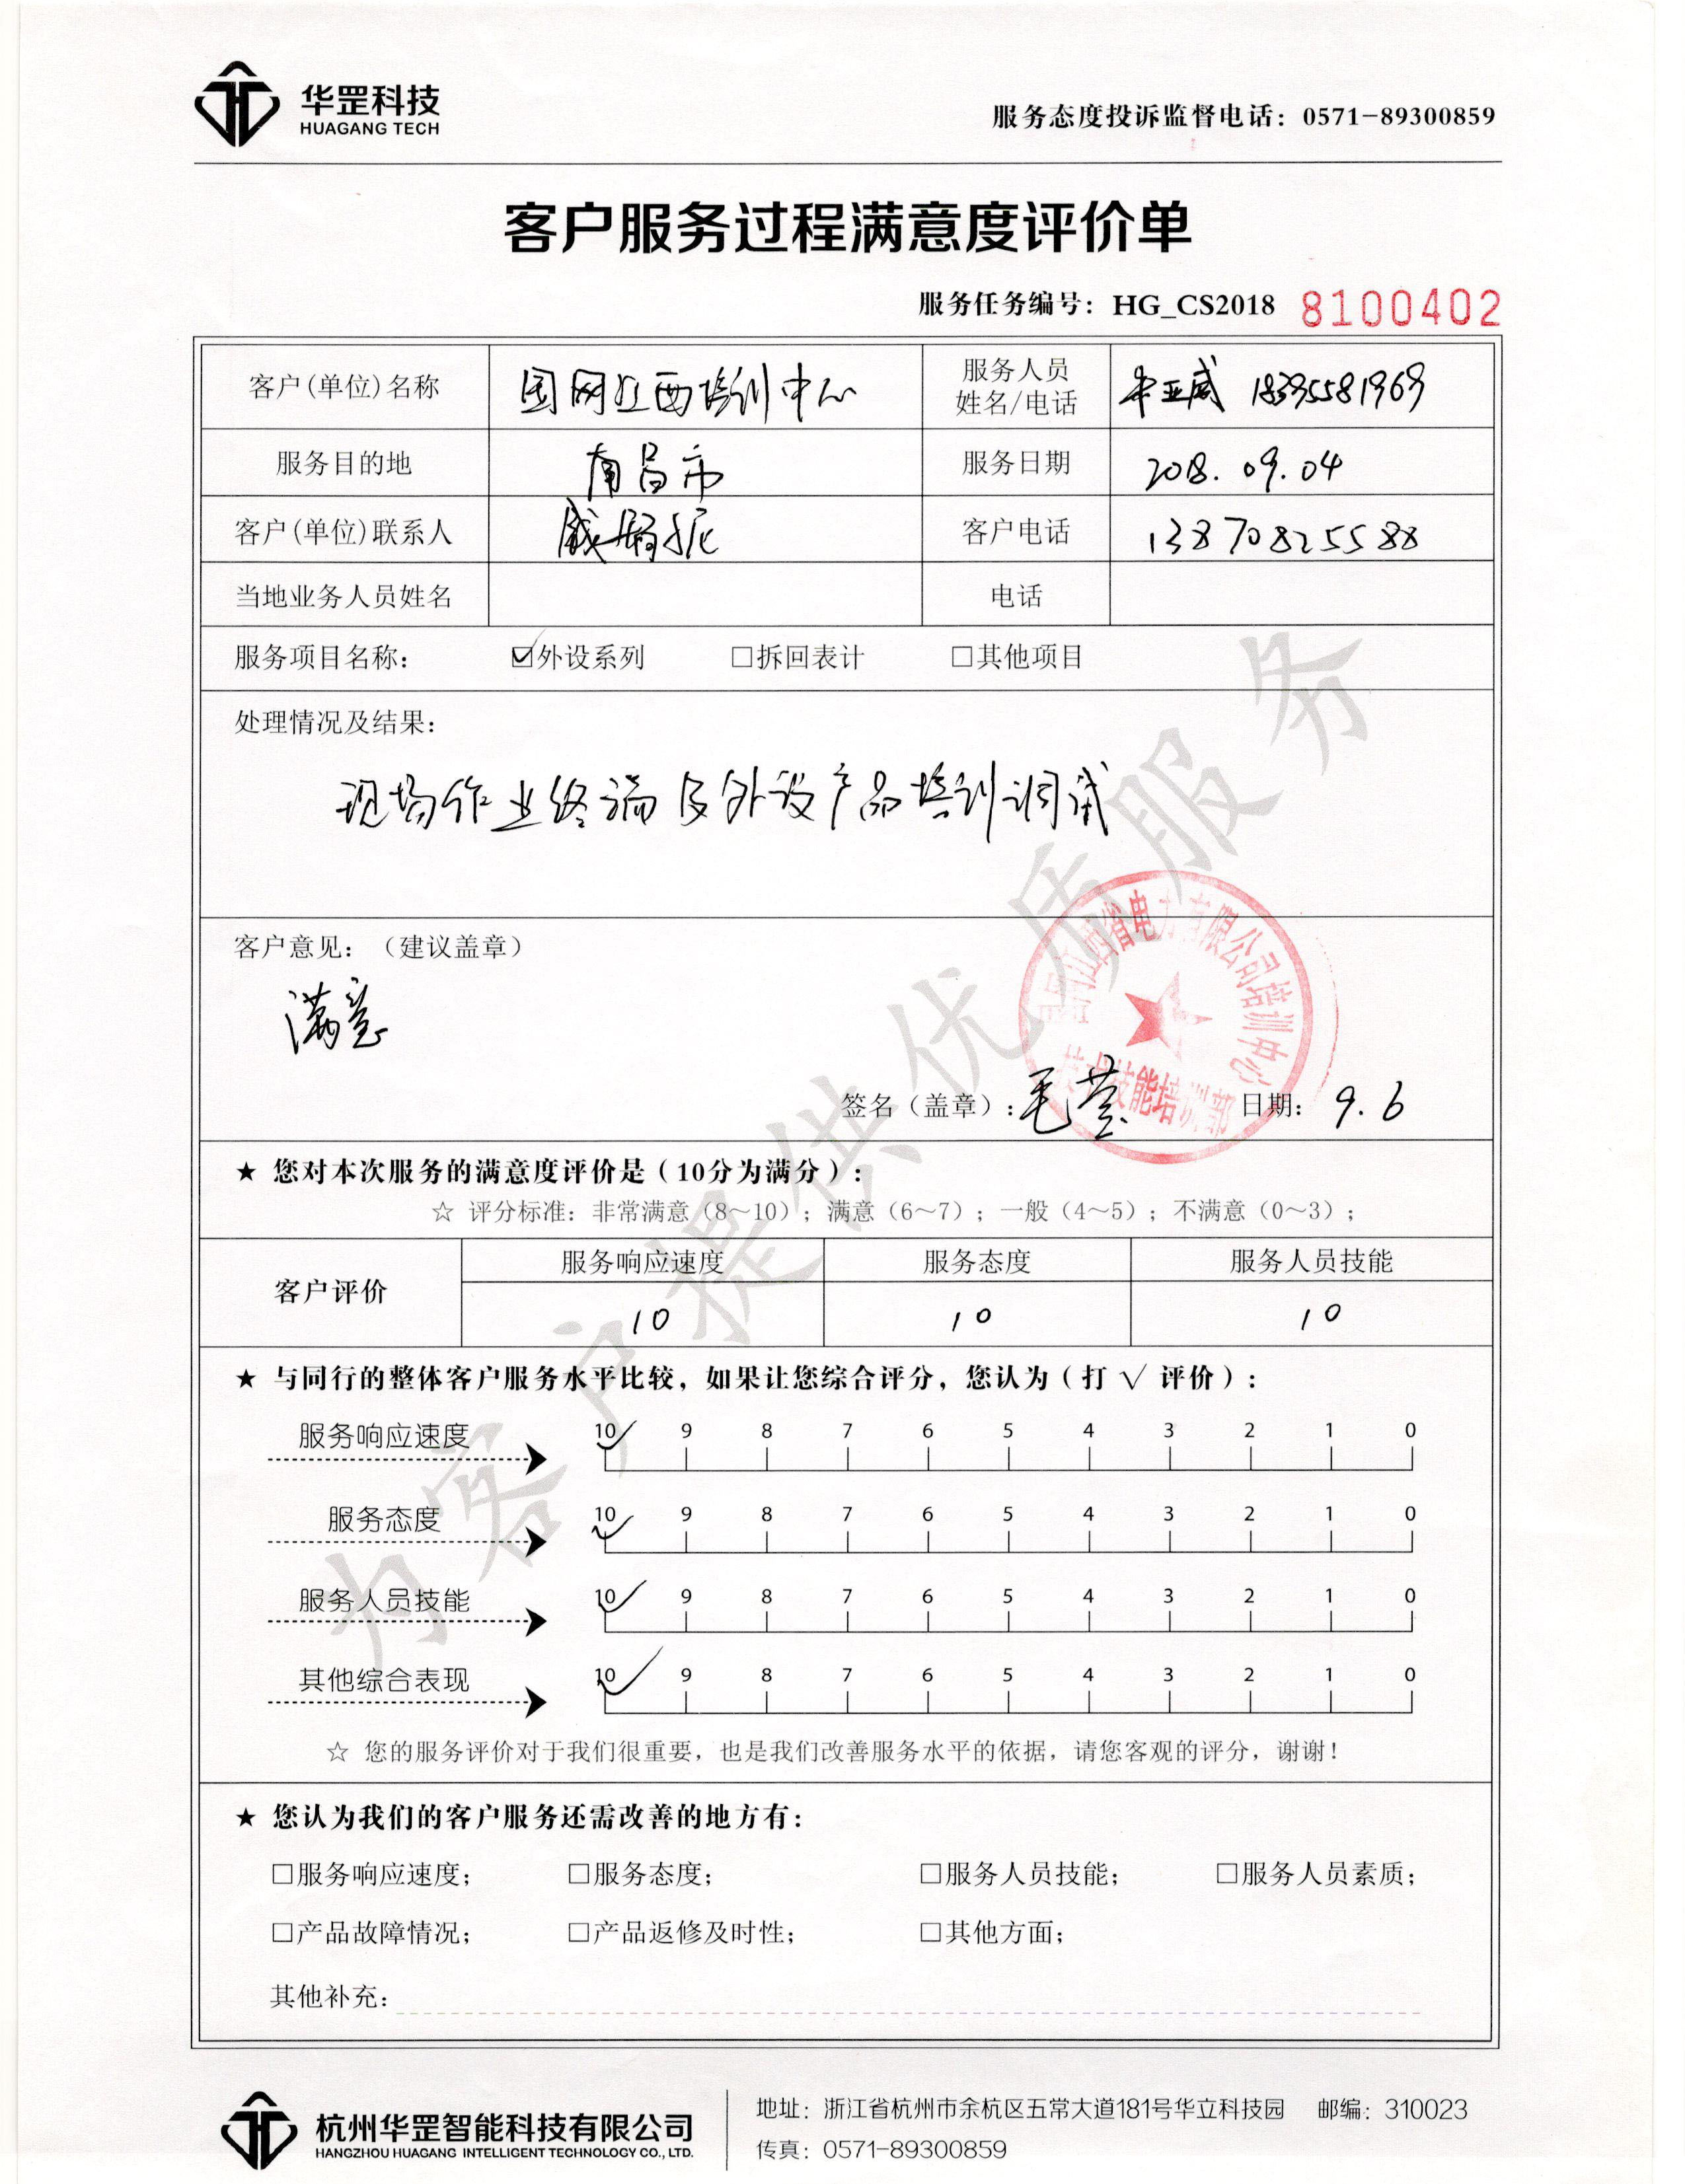 华罡科技
HUAGANG TECH
服务态度投诉监督电话：0571-89300859
客户服务过程满意度评价单
服务任务编号：HG_CS2018 8100402
客户(单位)名称 国网江西培训中心 服务人员姓名/电话 亚威 18395581969
服务目的地 南昌市 服务日期 2018.09.04
客户(单位)联系人 客户电话 13870825588
当地业务人员姓名 电话
服务项目名称： ☑外设系列 □拆回表计 □其他项目
处理情况及结果：
现场作业终端及外设产品培训调试
客户意见：（建议盖章）
满意
江西省电力有限公司培训中心
技能培训部
签名（盖章）：毛莹 日期：9.6
★ 您对本次服务的满意度评价是（10分为满分）：
☆ 评分标准：非常满意（8～10）；满意（6～7）；一般（4～5）；不满意（0～3）；
客户评价 服务响应速度 服务态度 服务人员技能
10 10 10
★ 与同行的整体客户服务水平比较，如果让您综合评分，您认为（打 √ 评价）：
服务响应速度 10 9 8 7 6 5 4 3 2 1 0
服务态度 10 9 8 7 6 5 4 3 2 1 0
服务人员技能 10 9 8 7 6 5 4 3 2 1 0
其他综合表现 10 9 8 7 6 5 4 3 2 1 0
☆ 您的服务评价对于我们很重要，也是我们改善服务水平的依据，请您客观的评分，谢谢！
★ 您认为我们的客户服务还需改善的地方有：
□服务响应速度； □服务态度； □服务人员技能； □服务人员素质；
□产品故障情况； □产品返修及时性； □其他方面；
其他补充：
为客户提供优质服务
杭州华罡智能科技有限公司
HANGZHOU HUAGANG INTELLIGENT TECHNOLOGY CO., LTD.
地址：浙江省杭州市余杭区五常大道181号华立科技园 邮编：310023
传真：0571-89300859